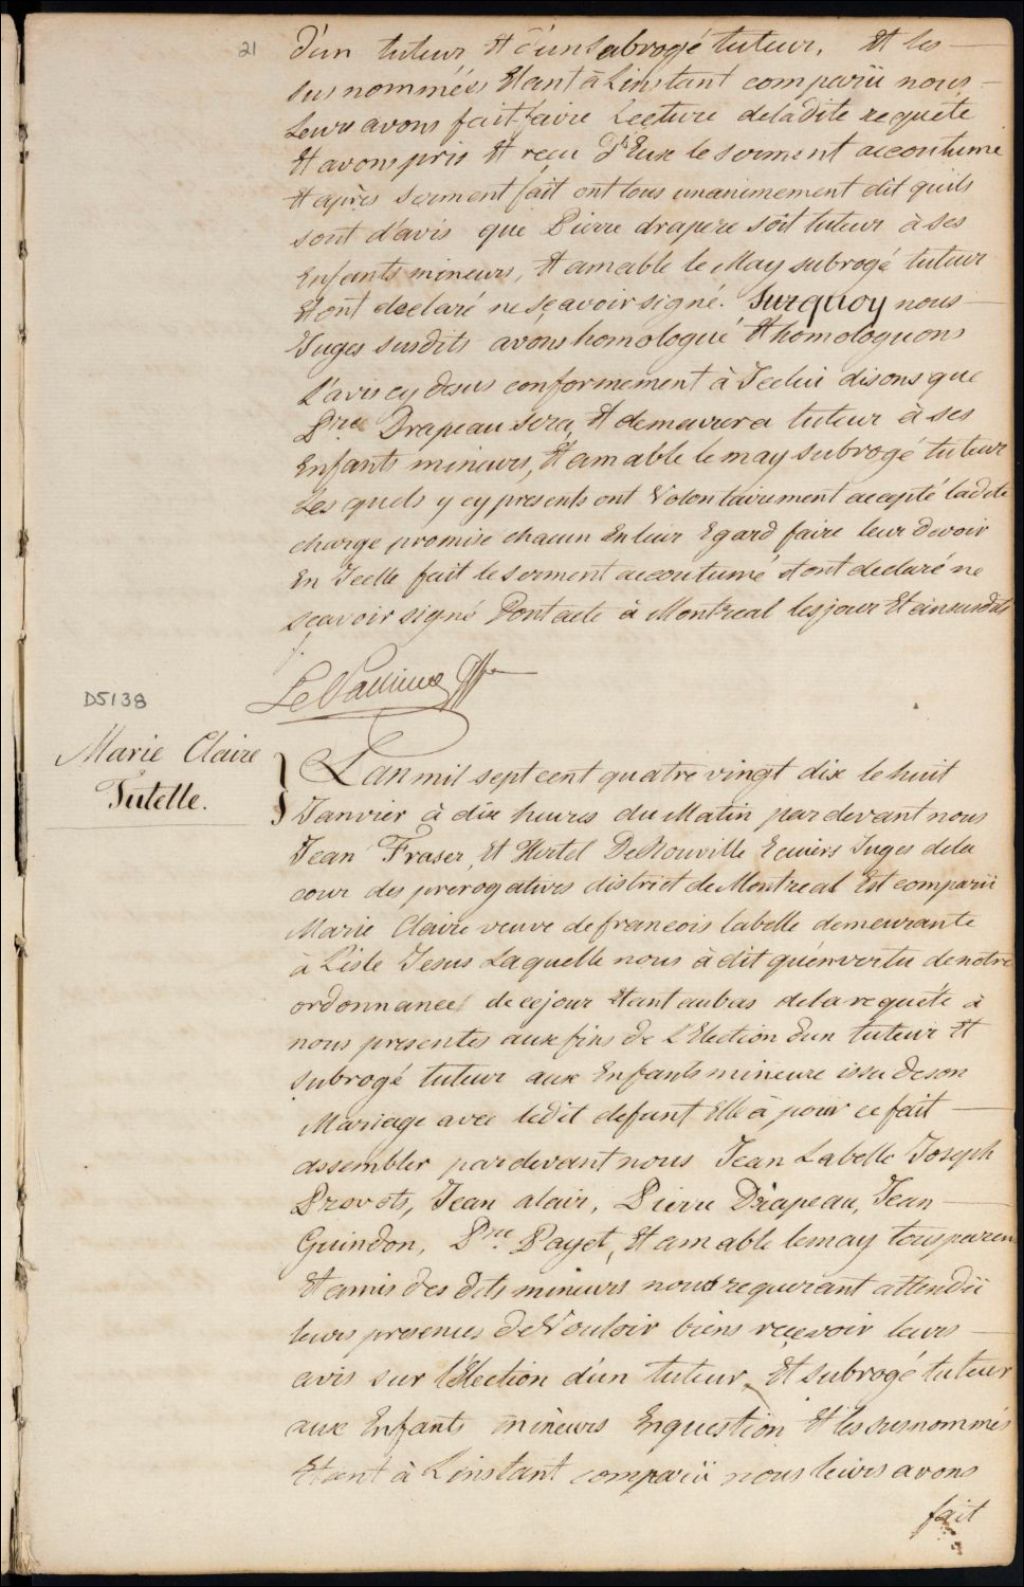 21
d'un tuteur Et d'un Subrogé tuteur, Et les
sus nommées Etant à Linstant comparüe nous
Leurs avons fait faire Lecture deladite requête
Et avons pris Et reçu d'Eux le serment accoutumé
Et après serment fait ont tous unanimement dit quils
sont d'avis que Pierre drapere soit tuteur à ses
Enfants mineurs, Et amable le May subrogé tuteur
Et ont declaré ne sçavoir signé. Surquoy nous
Juges susdits avons homologué Et homologuons
L'avis cy desus conformement à Icelui disons que
Prre Drapeau sera, Et demeurera tuteur à ses
Enfants mineurs, Et amable le may subrogé tuteur
Les quels y cy presents ont Volontairement accepté ladte
charge promise chacun En leur Egard faire leur devoir
En Icelle fait le serment accoutumé et ont declaré ne
sçavoir signé Dont acte à Montreal les jour Et an susdits
D5138
Marie Claire
Tutelle.
Lan mil sept cent quatre vingt dix le huit
Janvier à dix heures du Matin par devant nous
Jean Fraser, Et Hertel DeRouville Ecuiers Juges dela
cour des prerogatives district de Montreal Est comparüe
Marie Claire veuve de francois labelle demeurante
à Lisle Jesus Laquelle nous à dit qu'en vertu de notre
ordonnance de ce jour Etant au bas de la requête à
nous presentes aux fins de L'Election dun tuteur Et
subrogé tuteur aux Enfants mineure issu de son
Mariage avec ledit defunt Elle à pour ce fait
assembler par devant nous Jean Labelle Joseph
Provots, Jean alair, Pierre Drapeau, Jean
Guindon, Prre Payet, Et amable lemay tous paren
Et amis des dits mineurs nous requerant attendü
leurs presences de Vouloir biens reçevoir leurs
avis sur l'Election d'un tuteur, Et subrogé tuteur
aux Enfants mineurs En question Et les susnommés
Etant à Linstant comparüe nous leurs avons
fait